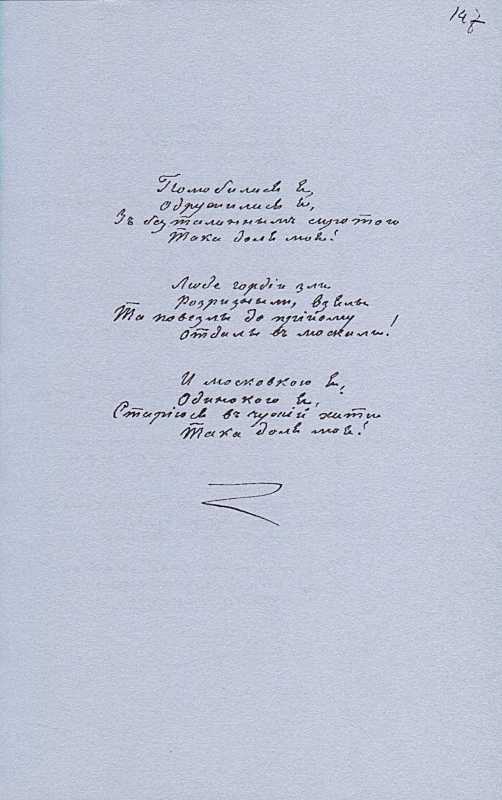 147
Полюбилася я,
Одружилася я,
Зъ безталаннымъ сиротою
Така доля моя!
Люде гордіи зли
Розризныли, взялы
Та повезлы до пріёму
Отдалы въ москали!
И московкою я,
Одинокою я,
Старіюся въ чужій хати
Така доля моя!